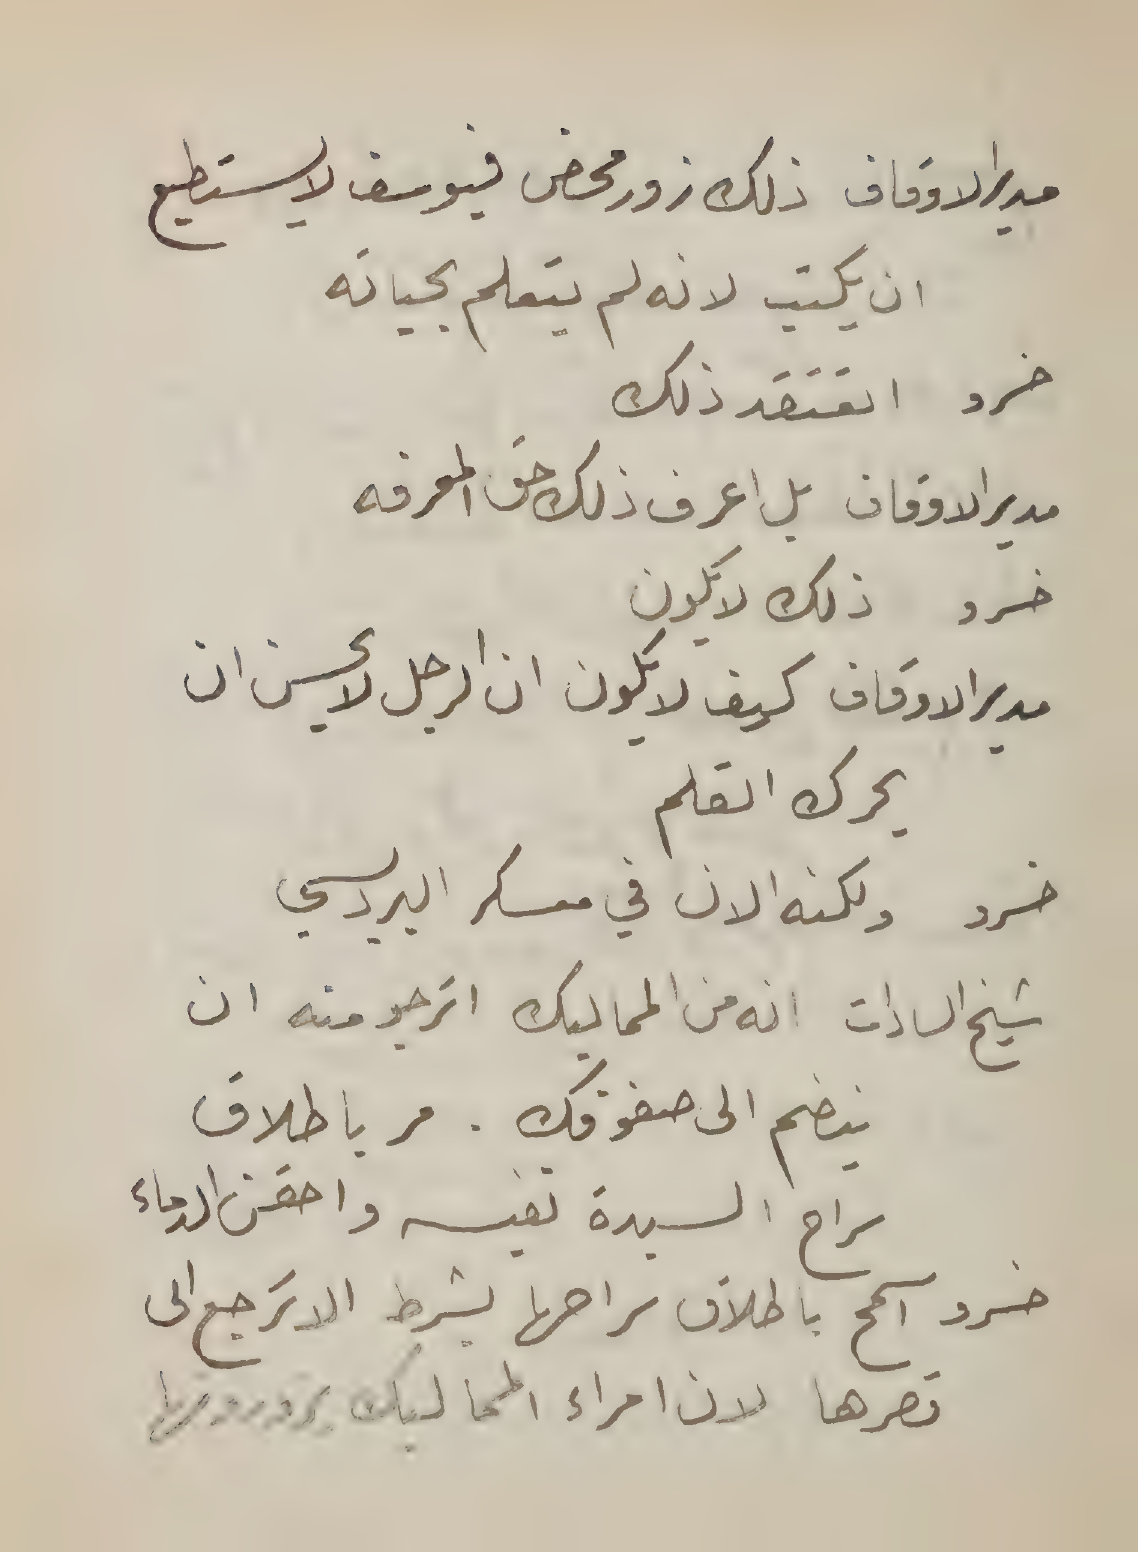 مدير الاوقاف ذلك زور محض فيوسف لا يستطيع
ان يكتب لانه لم يتعلم بحياته
خسرو اتعتقد ذلك
مدير الاوقاف بل اعرف ذلك حق المعرفه
خسرو ذلك لا يكون
مدير الاوقاف كيف لا يكون ان الرجل لا يحسن ان
يحرك القلم
خسرو ولكنه الان في معسكر البرديسي
شيخ السادات انه من المماليك اترجو منه ان
ينضم الى صفوفك . مر باطلاق
سراح السيدة نفيسه واحقن الدماء
خسرو اسمح باطلاق سراحها بشرط الا ترجع الى
قصرها لان امراء المماليك يزورونها